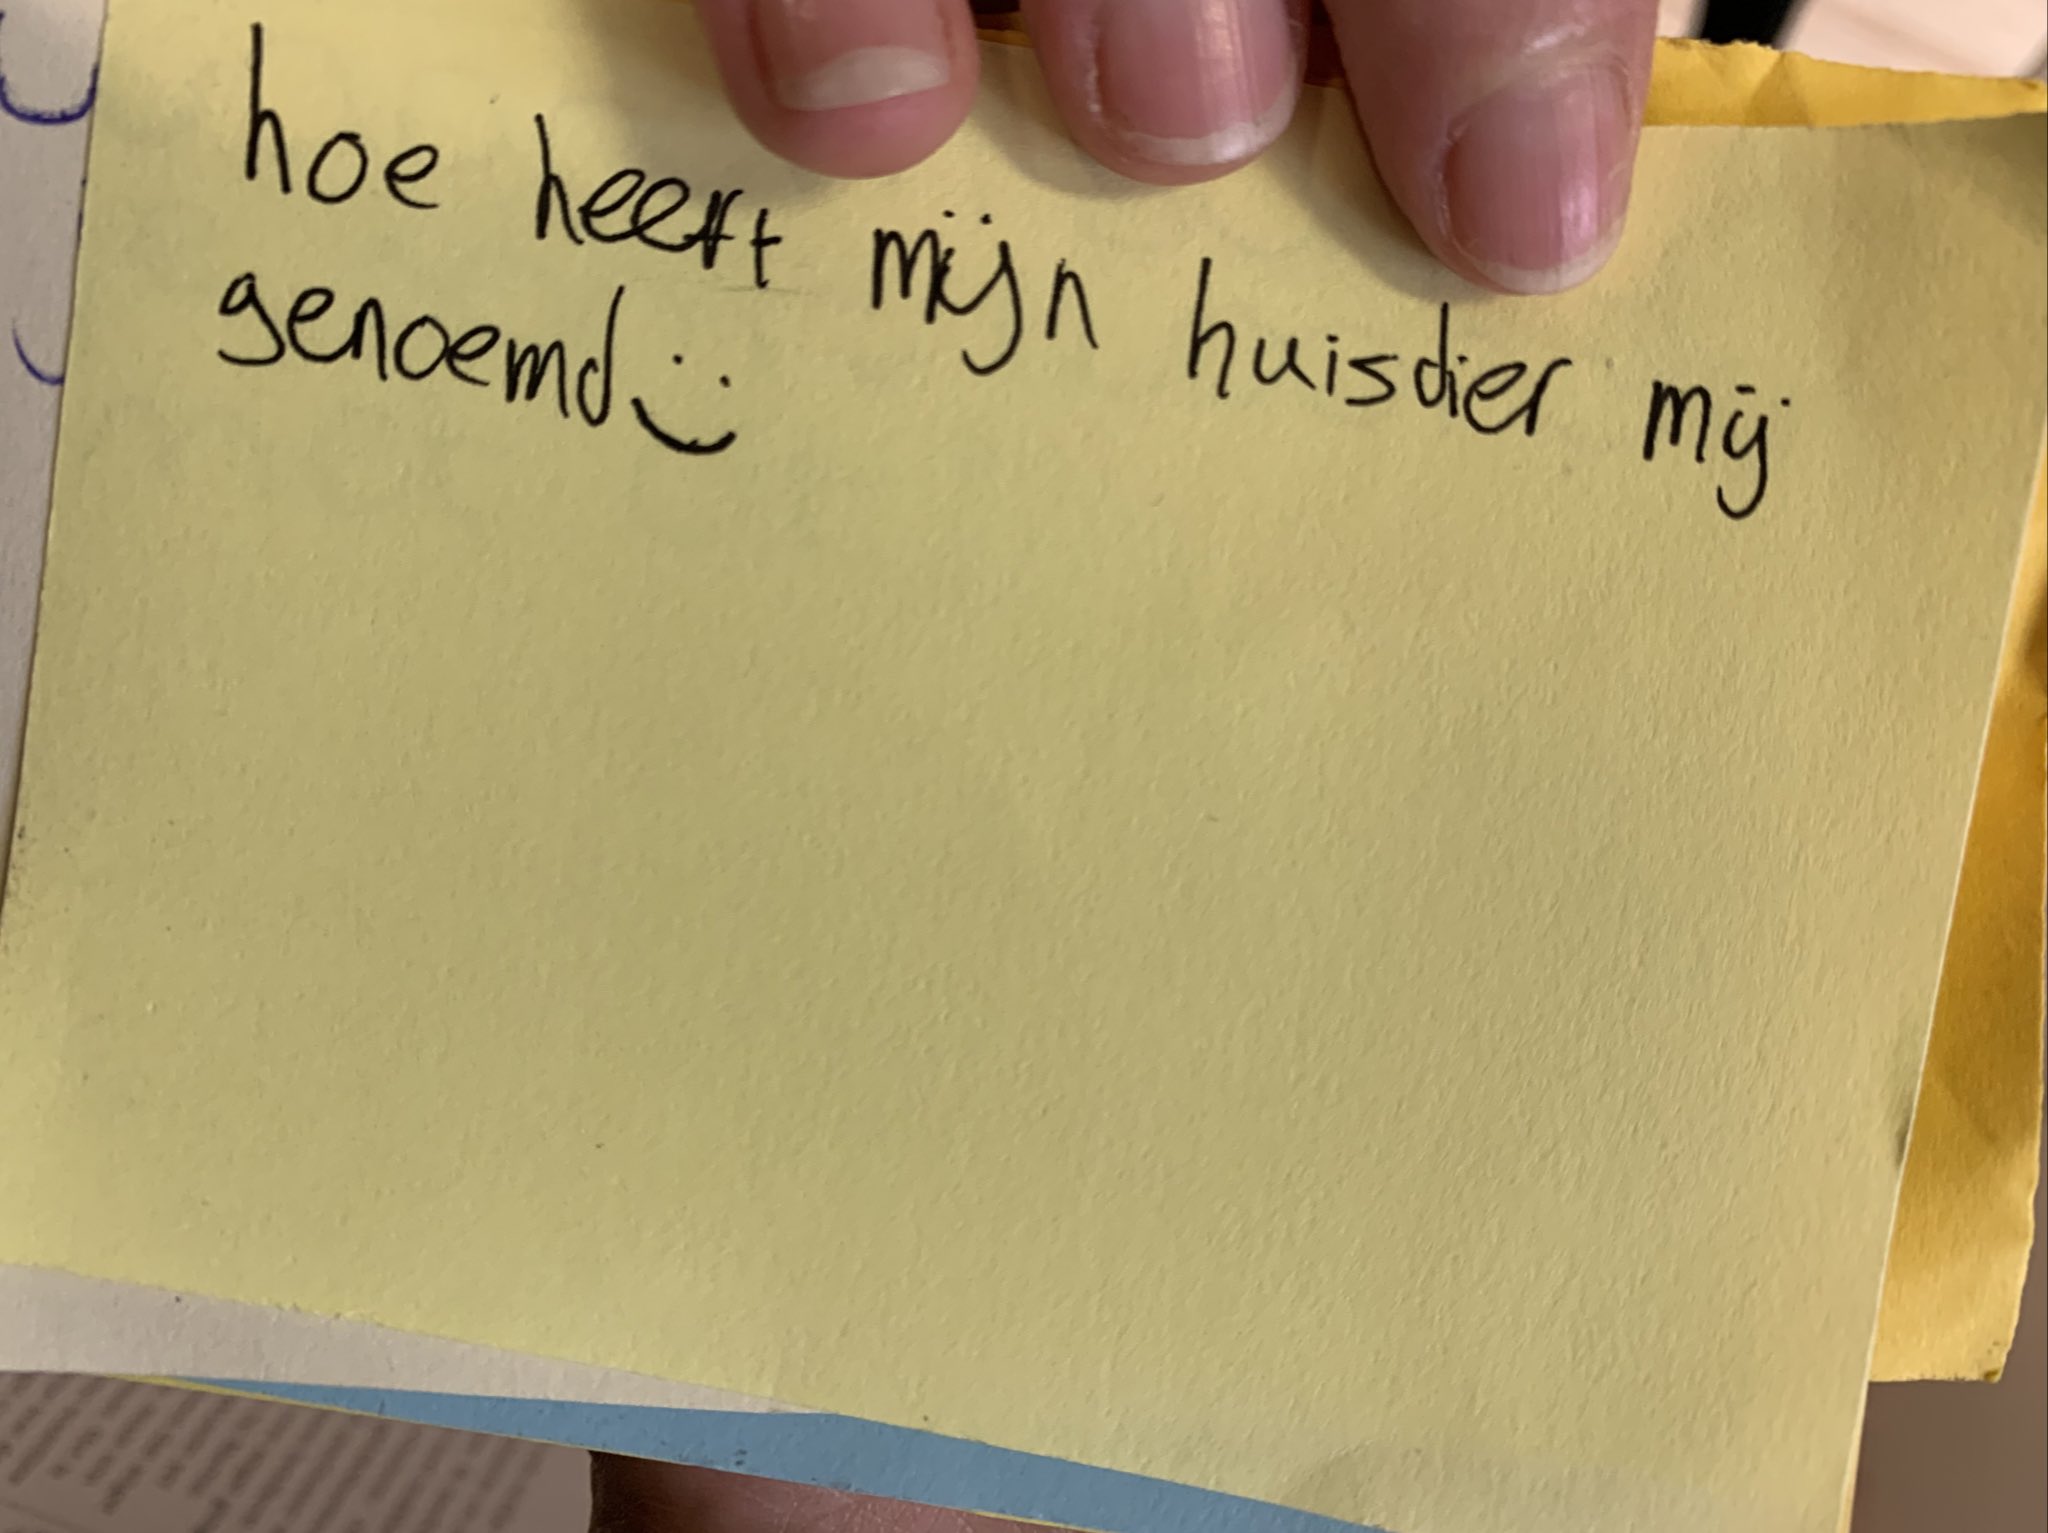 hoe heeft mijn huisdier mij
genoemd